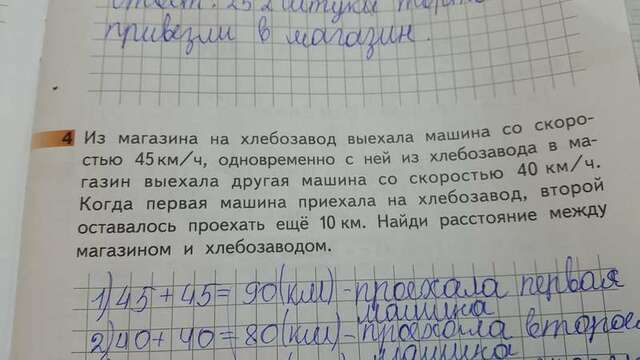 привезли в магазин.
4 Из магазина на хлебозавод выехала машина со скоро-
стью 45 км/ч, одновременно с ней из хлебозавода в ма-
газин выехала другая машина со скоростью 40 км/ч.
Когда первая машина приехала на хлебозавод, второй
оставалось проехать ещё 10 км. Найди расстояние между
магазином и хлебозаводом.
1) 45 + 45 = 90 (км) - проехала первая
машина
2) 40 + 40 = 80 (км) - проехала
машина